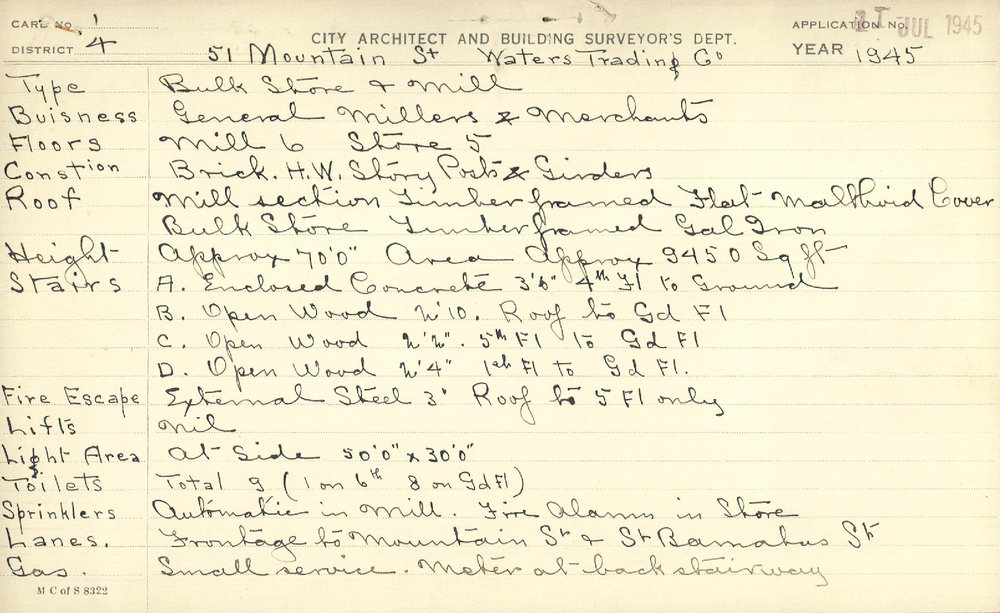 CARD No. 1
APPLICATION No. 11 JUL 1945
DISTRICT 4
CITY ARCHITECT AND BUILDING SURVEYOR'S DEPT.
YEAR 1945
51 Mountain St Waters Trading Co
Type Bulk Store & Mill
Buisness General Millers & Merchants
Floors Mill 6 Store 5
Constion Brick. H.W. Story Posts & Girders
Roof Mill section Timber framed Flat Malthoid Cover
Bulk Store Timber framed Gal Iron
Height Approx 70'0" Area Approx 9450 Sq ft
Stairs A. Enclosed Concrete 3'6" 4th Fl to Ground
B. Open Wood 2'10. Roof to Gd Fl
C. Open Wood 2'2". 5th Fl to Gd Fl
D. Open Wood 2'4" 1st Fl to Gd Fl.
Fire Escape External Steel 3' Roof to 5 Fl only
Lifts Nil
Light Area At Side 50'0" x 30'0"
Toilets Total 9 (1 on 6th 8 on Gd Fl)
Sprinklers Automatic in Mill. Fire Alarm in Store
Lanes. Frontage to Mountain St & St Barnabus St
Gas. Small service. Meter at back stairway
M C of S 8322